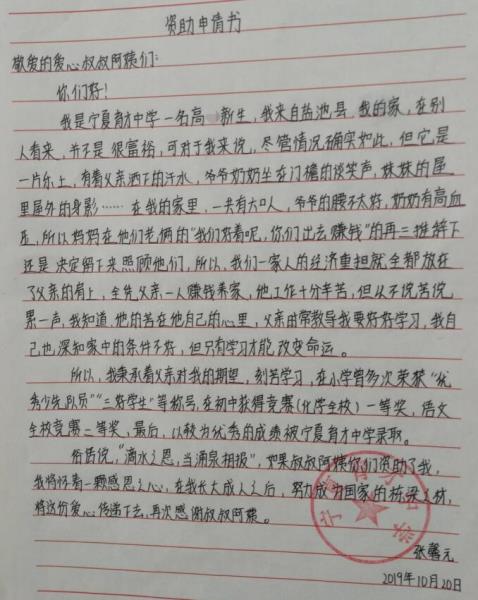 资助申请书
敬爱的爱心叔叔阿姨们:
你们好!
我是宁夏育才中学一名高一新生,我来自盐池县,我的家,在别
人看来,并不是很富裕,可对于我来说,尽管情况确实如此,但它是
一片乐土,有着父亲洒下的汗水,爷爷奶奶坐在门檐的谈笑声,妹妹的屋
里屋外的身影……在我的家里,一共有六口人,爷爷的腰不太好,奶奶有高血
压,所以妈妈在他们老俩的“我们好着呢,你们出去赚钱”的再三推辞下
还是决定留下来照顾他们,所以,我们一家人的经济重担就全都放在
了父亲的肩上,全凭父亲一人赚钱养家,他工作十分辛苦,但从不说苦说
累一声,我知道,他的苦在他自己的心里,父亲由常教导我要好好学习,我自
己也深知家中的条件不好,但只有学习才能改变命运。
所以,我秉承着父亲对我的期望,刻苦学习,在小学曾多次荣获“优
秀少先队员”“三好学生”等称号,在初中获得竞赛(化学全校)一等奖,语文
全校竞赛二等奖,最后,以较为优秀的成绩被宁夏育才中学录取。
俗话说,“滴水之恩,当涌泉相报”,如果叔叔阿姨你们资助了我,
我将怀着一颗感恩之心,在我长大成人之后,努力成为国家的栋梁之材,
将这份爱心传递下去,再次感谢叔叔阿姨。
张馨元
2019年10月20日